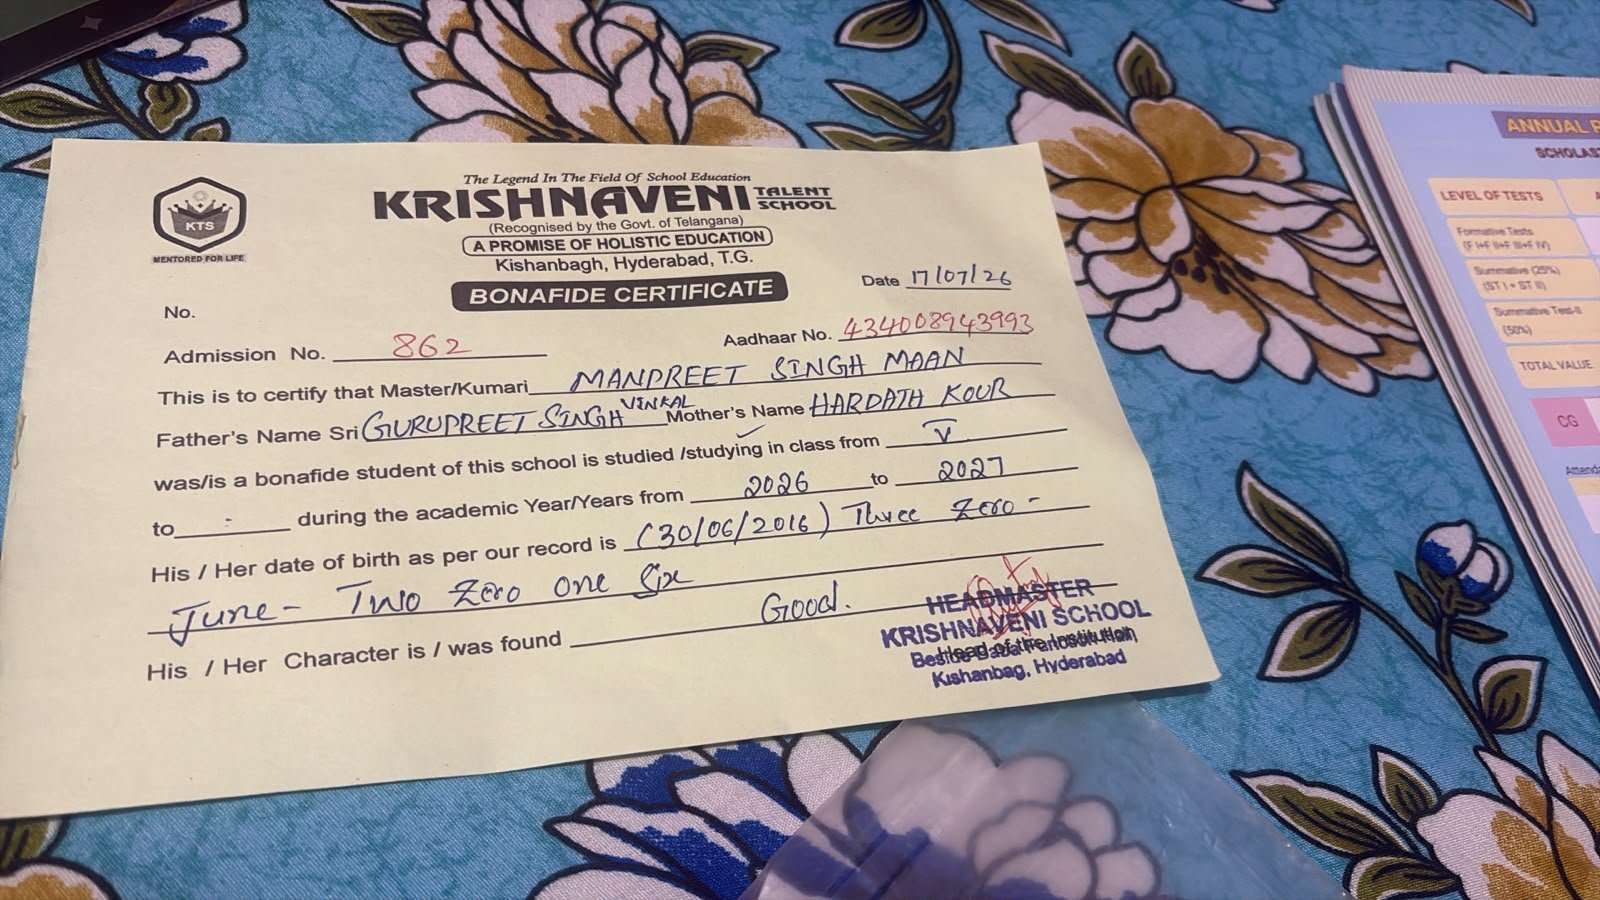 The Legend In The Field Of School Education
KRISHNAVENI TALENT SCHOOL
(Recognised by the Govt. of Telangana)
A PROMISE OF HOLISTIC EDUCATION
Kishanbagh, Hyderabad, T.G.
KTS
MENTORED FOR LIFE
BONAFIDE CERTIFICATE
Date 17/07/26
No.
Admission No. 862
Aadhaar No. 434008943993
This is to certify that Master/Kumari MANPREET SINGH MAAN
Father's Name Sri GURUPREET SINGH VINKAL Mother's Name HARDATH KOUR
was/is a bonafide student of this school is studied /studying in class from V
to - during the academic Year/Years from 2026 to 2027
His / Her date of birth as per our record is (30/06/2016) Three Zero -
June - Two Zero one Six
His / Her Character is / was found Good.
HEADMASTER
KRISHNAVENI SCHOOL
Head of the Institution
Beside
Kishanbag, Hyderabad
ANNUAL
LEVEL OF TESTS
Formative Tests
(F I+F II+F III+F IV)
Summative (25%)
(ST I + ST II)
Summative Test-II
(50%)
TOTAL VALUE
CG